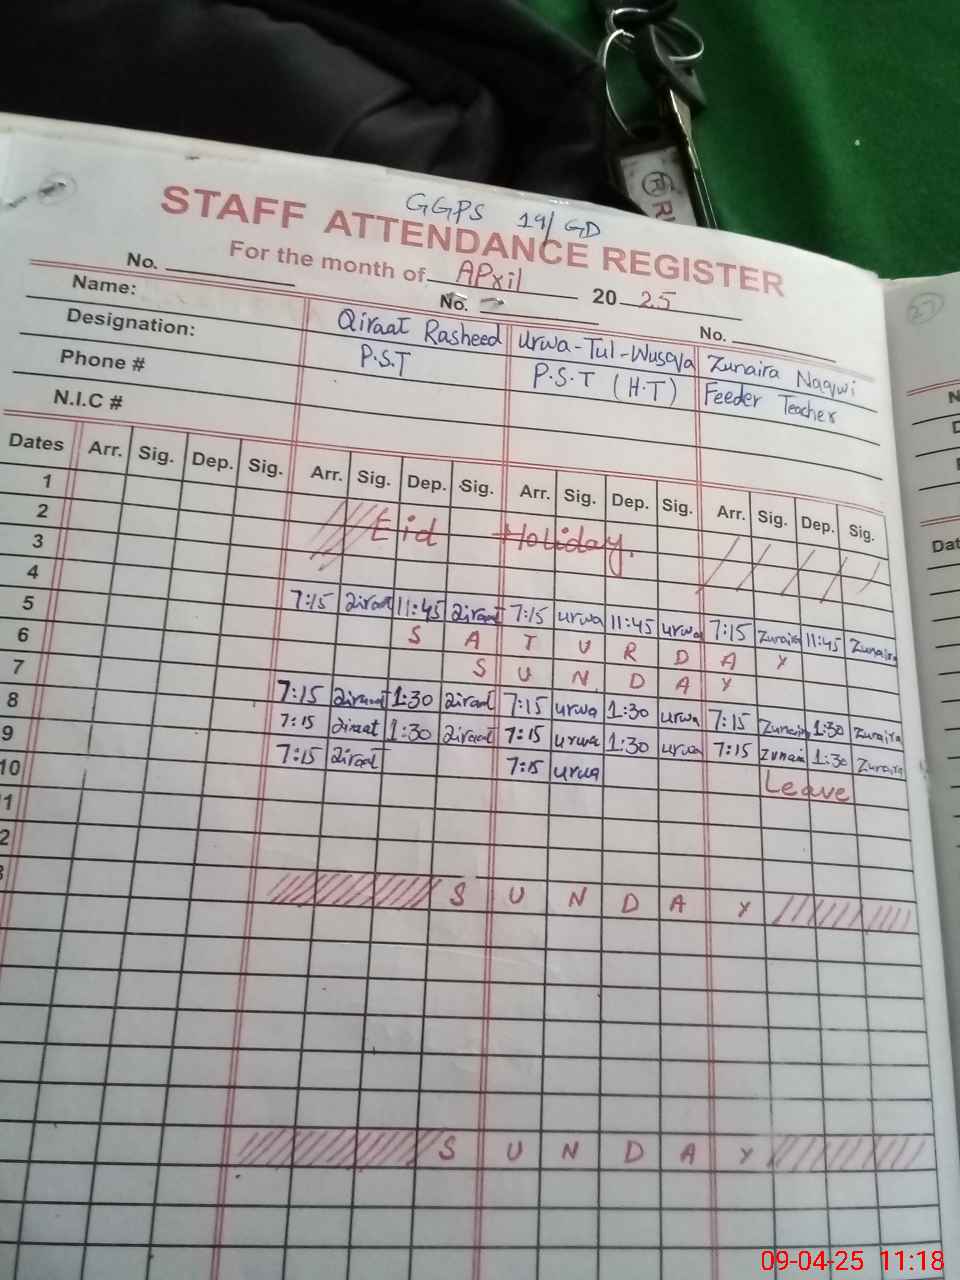 GGPS 19/GD
STAFF ATTENDANCE REGISTER
For the month of April 2025
No. No. No.
Name: Qiraat Rasheed Urwa-Tul-Wusqa Zunaira Naqwi
Designation: P.S.T P.S.T (H.T) Feeder Teacher
Phone #
N.I.C #
Dates Arr. Sig. Dep. Sig. Arr. Sig. Dep. Sig. Arr. Sig. Dep. Sig. Arr. Sig. Dep. Sig.
1
2 Eid Holiday.
3
4
5 7:15 Qiraat 11:45 Qiraat 7:15 urwa 11:45 urwa 7:15 Zunaira 11:45 Zunaira
6 S A T U R D A Y
7 S U N D A Y
8 7:15 Qiraat 1:30 Qiraat 7:15 urwa 1:30 urwa 7:15 Zunaira 1:30 Zunaira
9 7:15 Qiraat 1:30 Qiraat 7:15 urwa 1:30 urwa 7:15 Zunai 1:30 Zunaira
10 7:15 Qiraat 7:15 urwa Leave
11
2
3 S U N D A Y
S U N D A Y
27
Dat
09-04-25 11:18